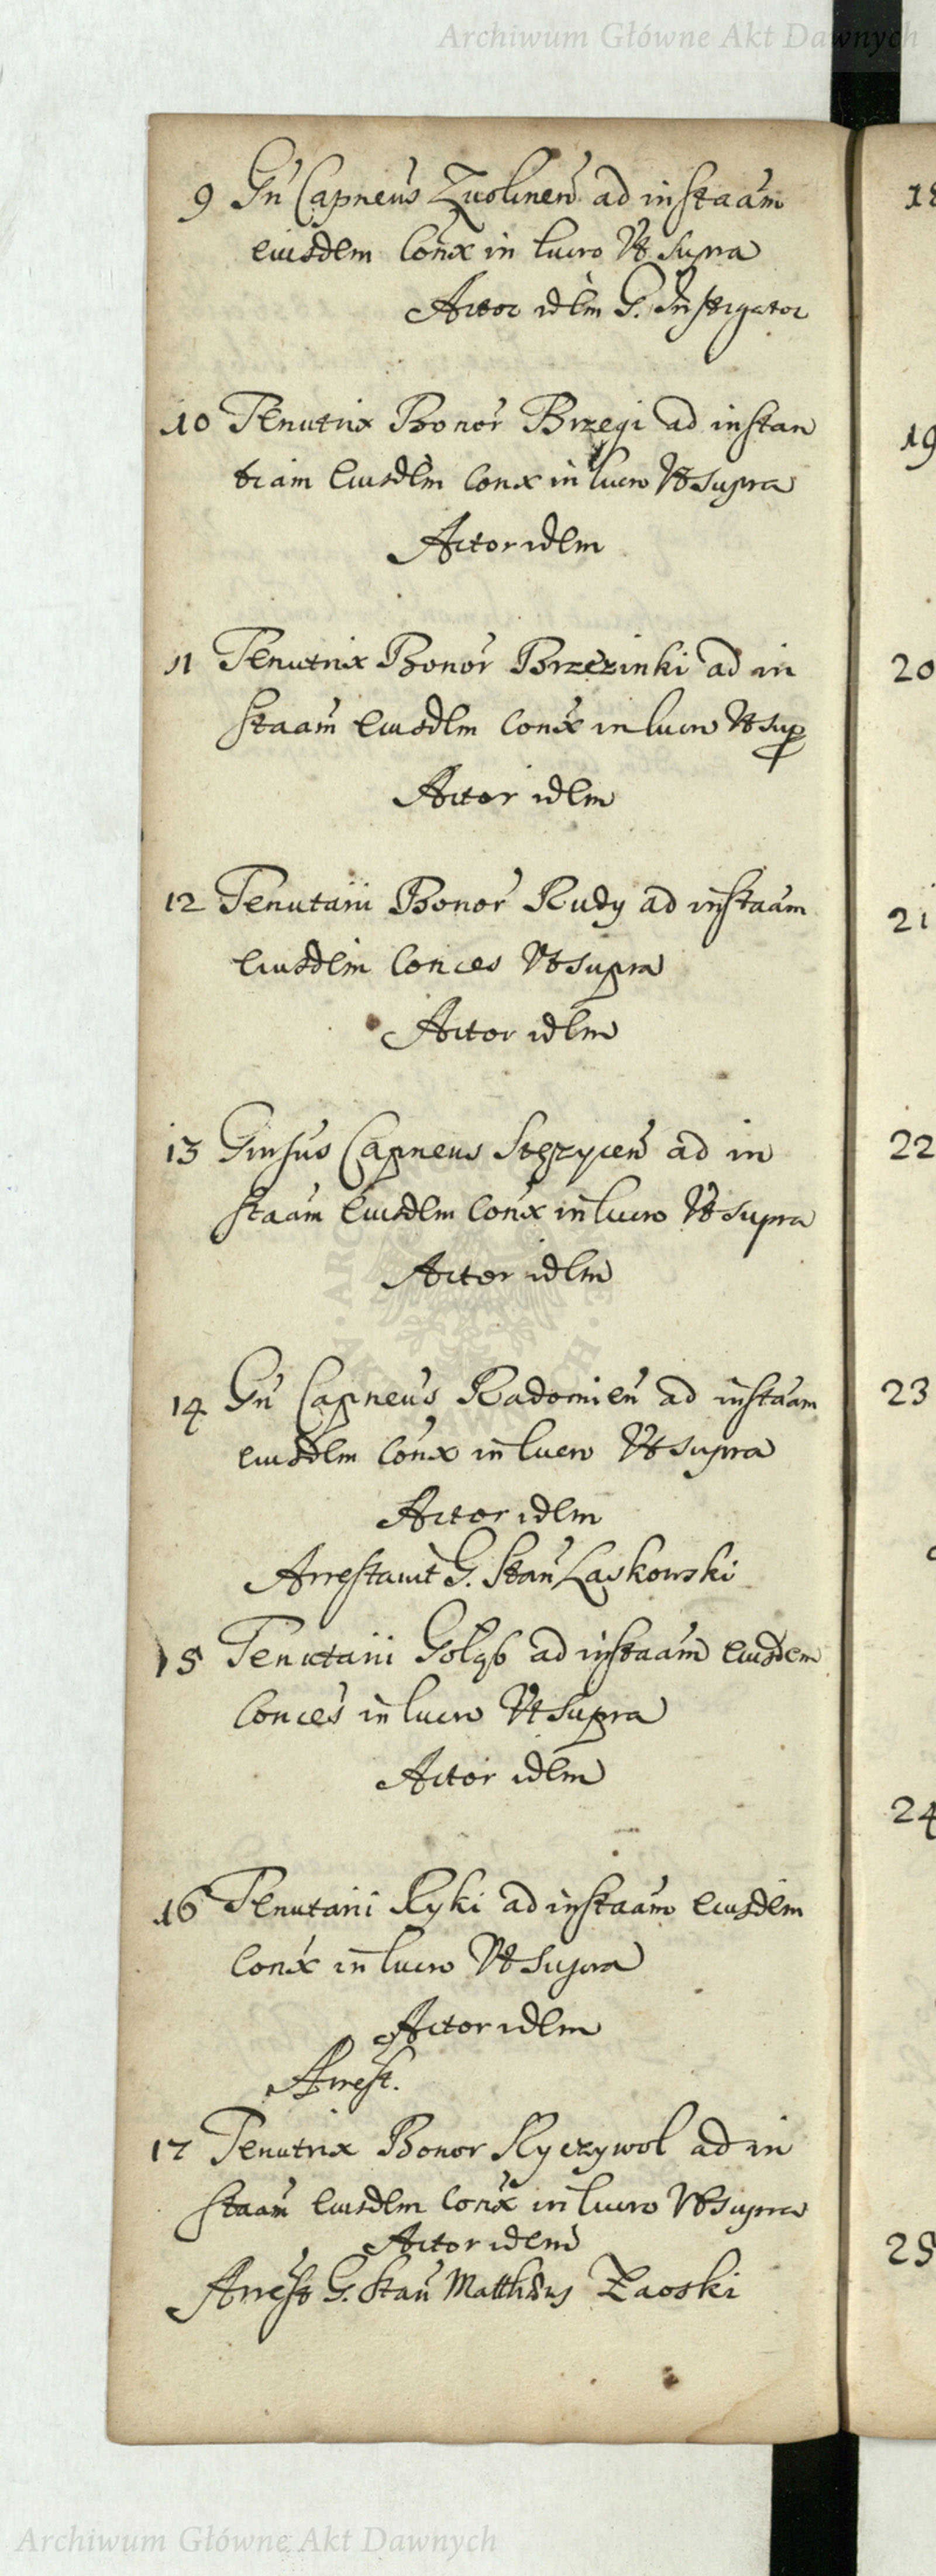 Archiwum Główne Akt Dawnych
9 Gń Capneus Zwolineń ad instaam
eiusdem Conx in lucro Vt supra
Actor idem G. Instigator
10 Tenutrix Bonor Brzegi ad instan
tiam Eiusdem Conx in lucro Vt supra
Actor idem
11 Tenutrix Bonor Brzezinki ad in
staam Eiusdem Conx in lucro Vt sup
Actor idem
12 Tenutarii Bonor Rudy ad instaam
Eiusdem Conces Vt supra
Actor idem
13 Capneus Stęzyceń ad in
staam Eiusdem Conx in lucro Vt supra
Actor idem
14 Gń Capneus Radomień ad instaam
eiusdem Conx in lucro Vt supra
Actor idem
Arrestavit G. Stań Laskowski
15 Tenutarii Gołąb ad instaam Eiusdem
Conces in lucro Vt supra
Actor idem
16 Tenutarii Ryki ad instaam Eiusdem
Conx in lucro Vt supra
Actor idem
Arrest.
17 Tenutrix Bonor Ryczywol ad in
staam Eiusdem Conx in lucro Vt supra
Actor idem
Arrest G. Stań Matthęus Zaoski
18
19
20
21
22
23
24
25
Archiwum Główne Akt Dawnych